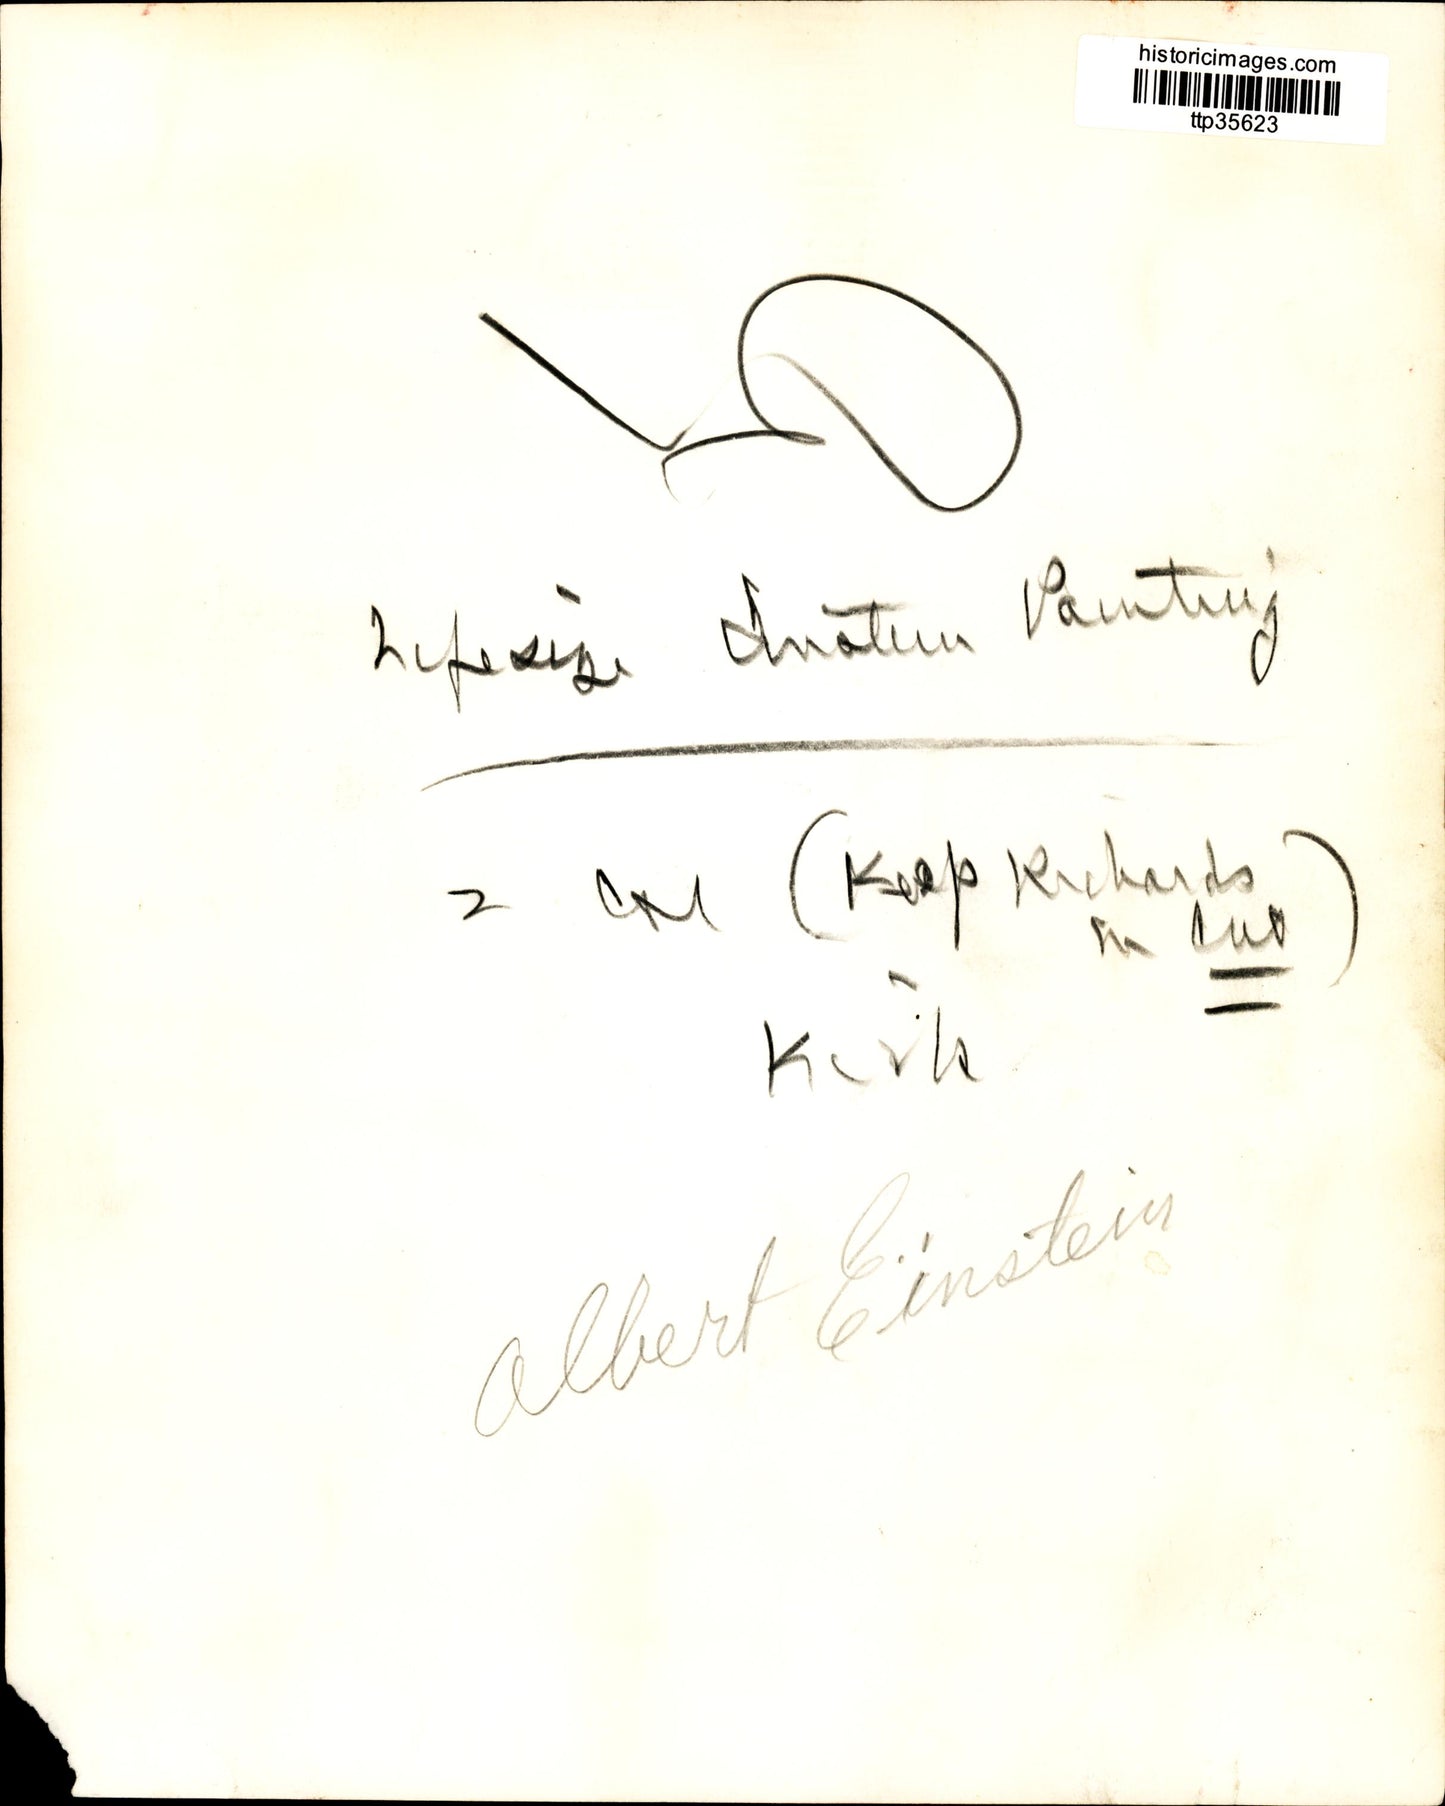 historicimages.com
ttp35623
Lifesize Einstein Painting
2 col (Keep Richards
in cut)
Kirk
Albert Einstein